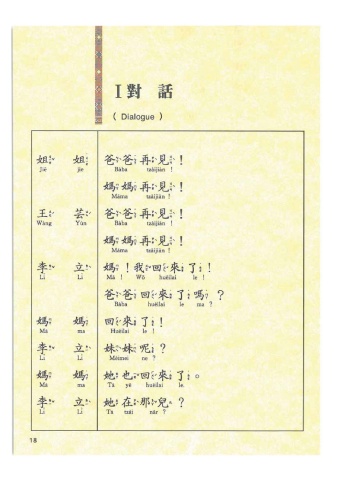 I 對 話
( Dialogue )
姐 姐 爸爸再見！
Jiě jie Bàba tsàijiàn !
媽媽再見！
Māma tsàijiàn !
王 芸 爸爸再見！
Wáng Yún Bàba tsàijiàn !
媽媽再見！
Māma tsàijiàn !
李 立 媽！我回來了！
Lǐ Lì Mā ! Wǒ huéilai le !
爸爸回來了嗎？
Bàba huéilai le ma ?
媽 媽 回來了！
Mā ma Huéilai le !
李 立 妹妹呢？
Lǐ Lì Mèimei ne ?
媽 媽 她也回來了。
Mā ma Tā yě huéilai le .
李 立 她在那兒？
Lǐ Lì Tā tsài nǎr ?
18